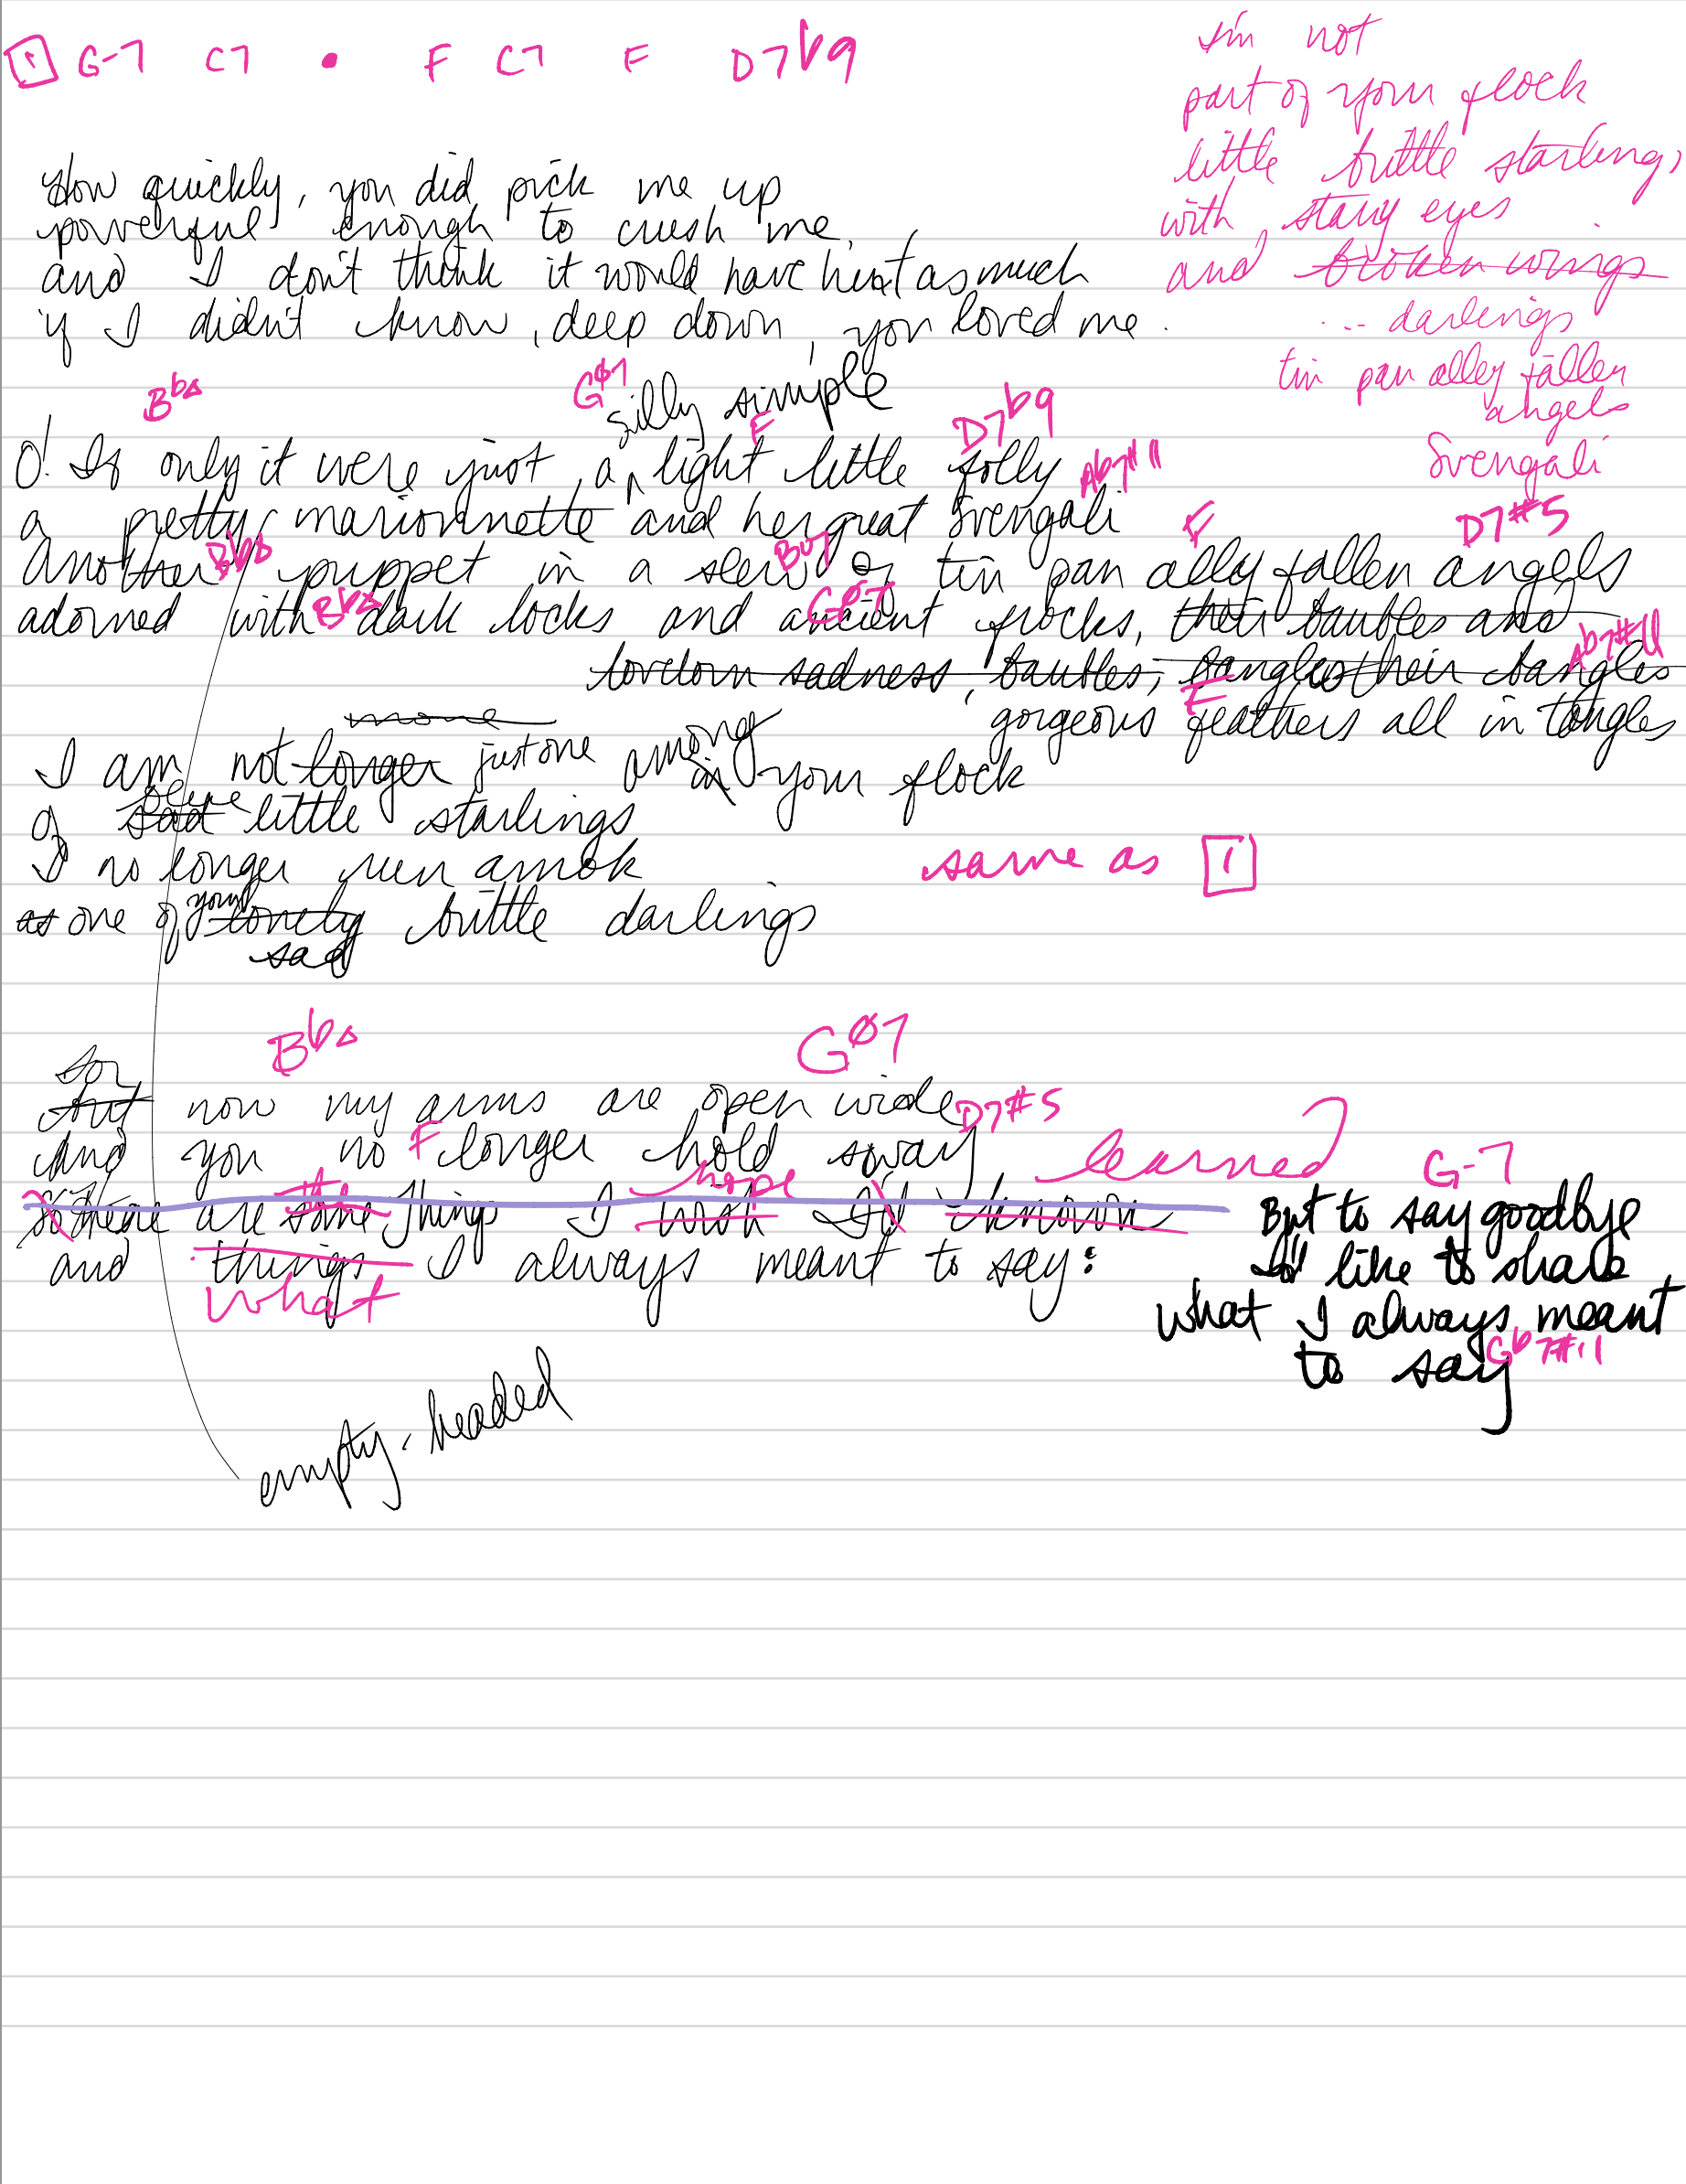 1 G-7 C7 • F C7 F D7b9
I'm not
part of your flock
little brittle starlings,
with stary eyes
and broken wings
... darlings
tin pan alley fallen
angels
Svengali
How quickly, you did pick me up
powerful enough to crush me,
and I don't think it would have hurt as much
if I didn't know, deep down, you loved me.
BbΔ GØ7 silly simple F D7b9
O! If only it were just a light little folly Ab7#11
a pretty marionnette and her great Svengali F D7#5
BbΔ
another puppet in a slew of tin pan ally fallen angels
BbΔ GØ7
adorned with dark locks and ancient frocks, their baubles and
Ab7#11
lovelorn sadness, baubles, bangles their bangles
F
gorgeous feathers all in tangles
more
I am not longer just one among in your flock
blue
of sad little starlings
I no longer run amok same as 1
your
as one of lonely brittle darlings
sad
BbΔ GØ7
for
but now my arms are open wide D7#5
and you no F longer hold sway learned G-7
hope
So there are some things I wish I'd known
and things I always meant to say:
what
But to say goodbye
I'd like to share
what I always meant
to say Gb7#11
empty-headed